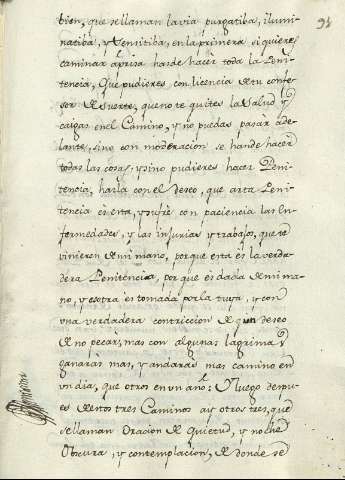 94
bien, que se llaman la via purgatiba, ilumi
natiba, y Vnnitiba, en la primera si quieres
caminar aprisa has de hacer toda la Peni
tencia, Que pudieres con licencia de tu confe
sor de suerte, que no te quites la salud y
caigas en el Camino, y no puedas pasar ade
lante, sino con moderacion se han de hacer
todas las cosas, y sino pudieres hacer Peni
tencia, harla con el deseo, que arta Peni
tencia es esta, y sufre con paciencia las En
fermedades, y las injurias y trabajos, que te
vinieren de mi mano, porque esta es la verda
dera Penitencia, porque es dada de mi ma
no, y esotra es tomada por la tuya, y con
vna verdadera contriccion de gran deseo
de no pecar, mas con algunas lagrimas
ganaras mas, y andaràs mas camino en
vn dia, que otros en vn año. Y luego despu
es de estos tres Caminos ay otros tres, que
se llaman Oracion de Quietud, y noche
Obscura, y contemplacion, de donde se